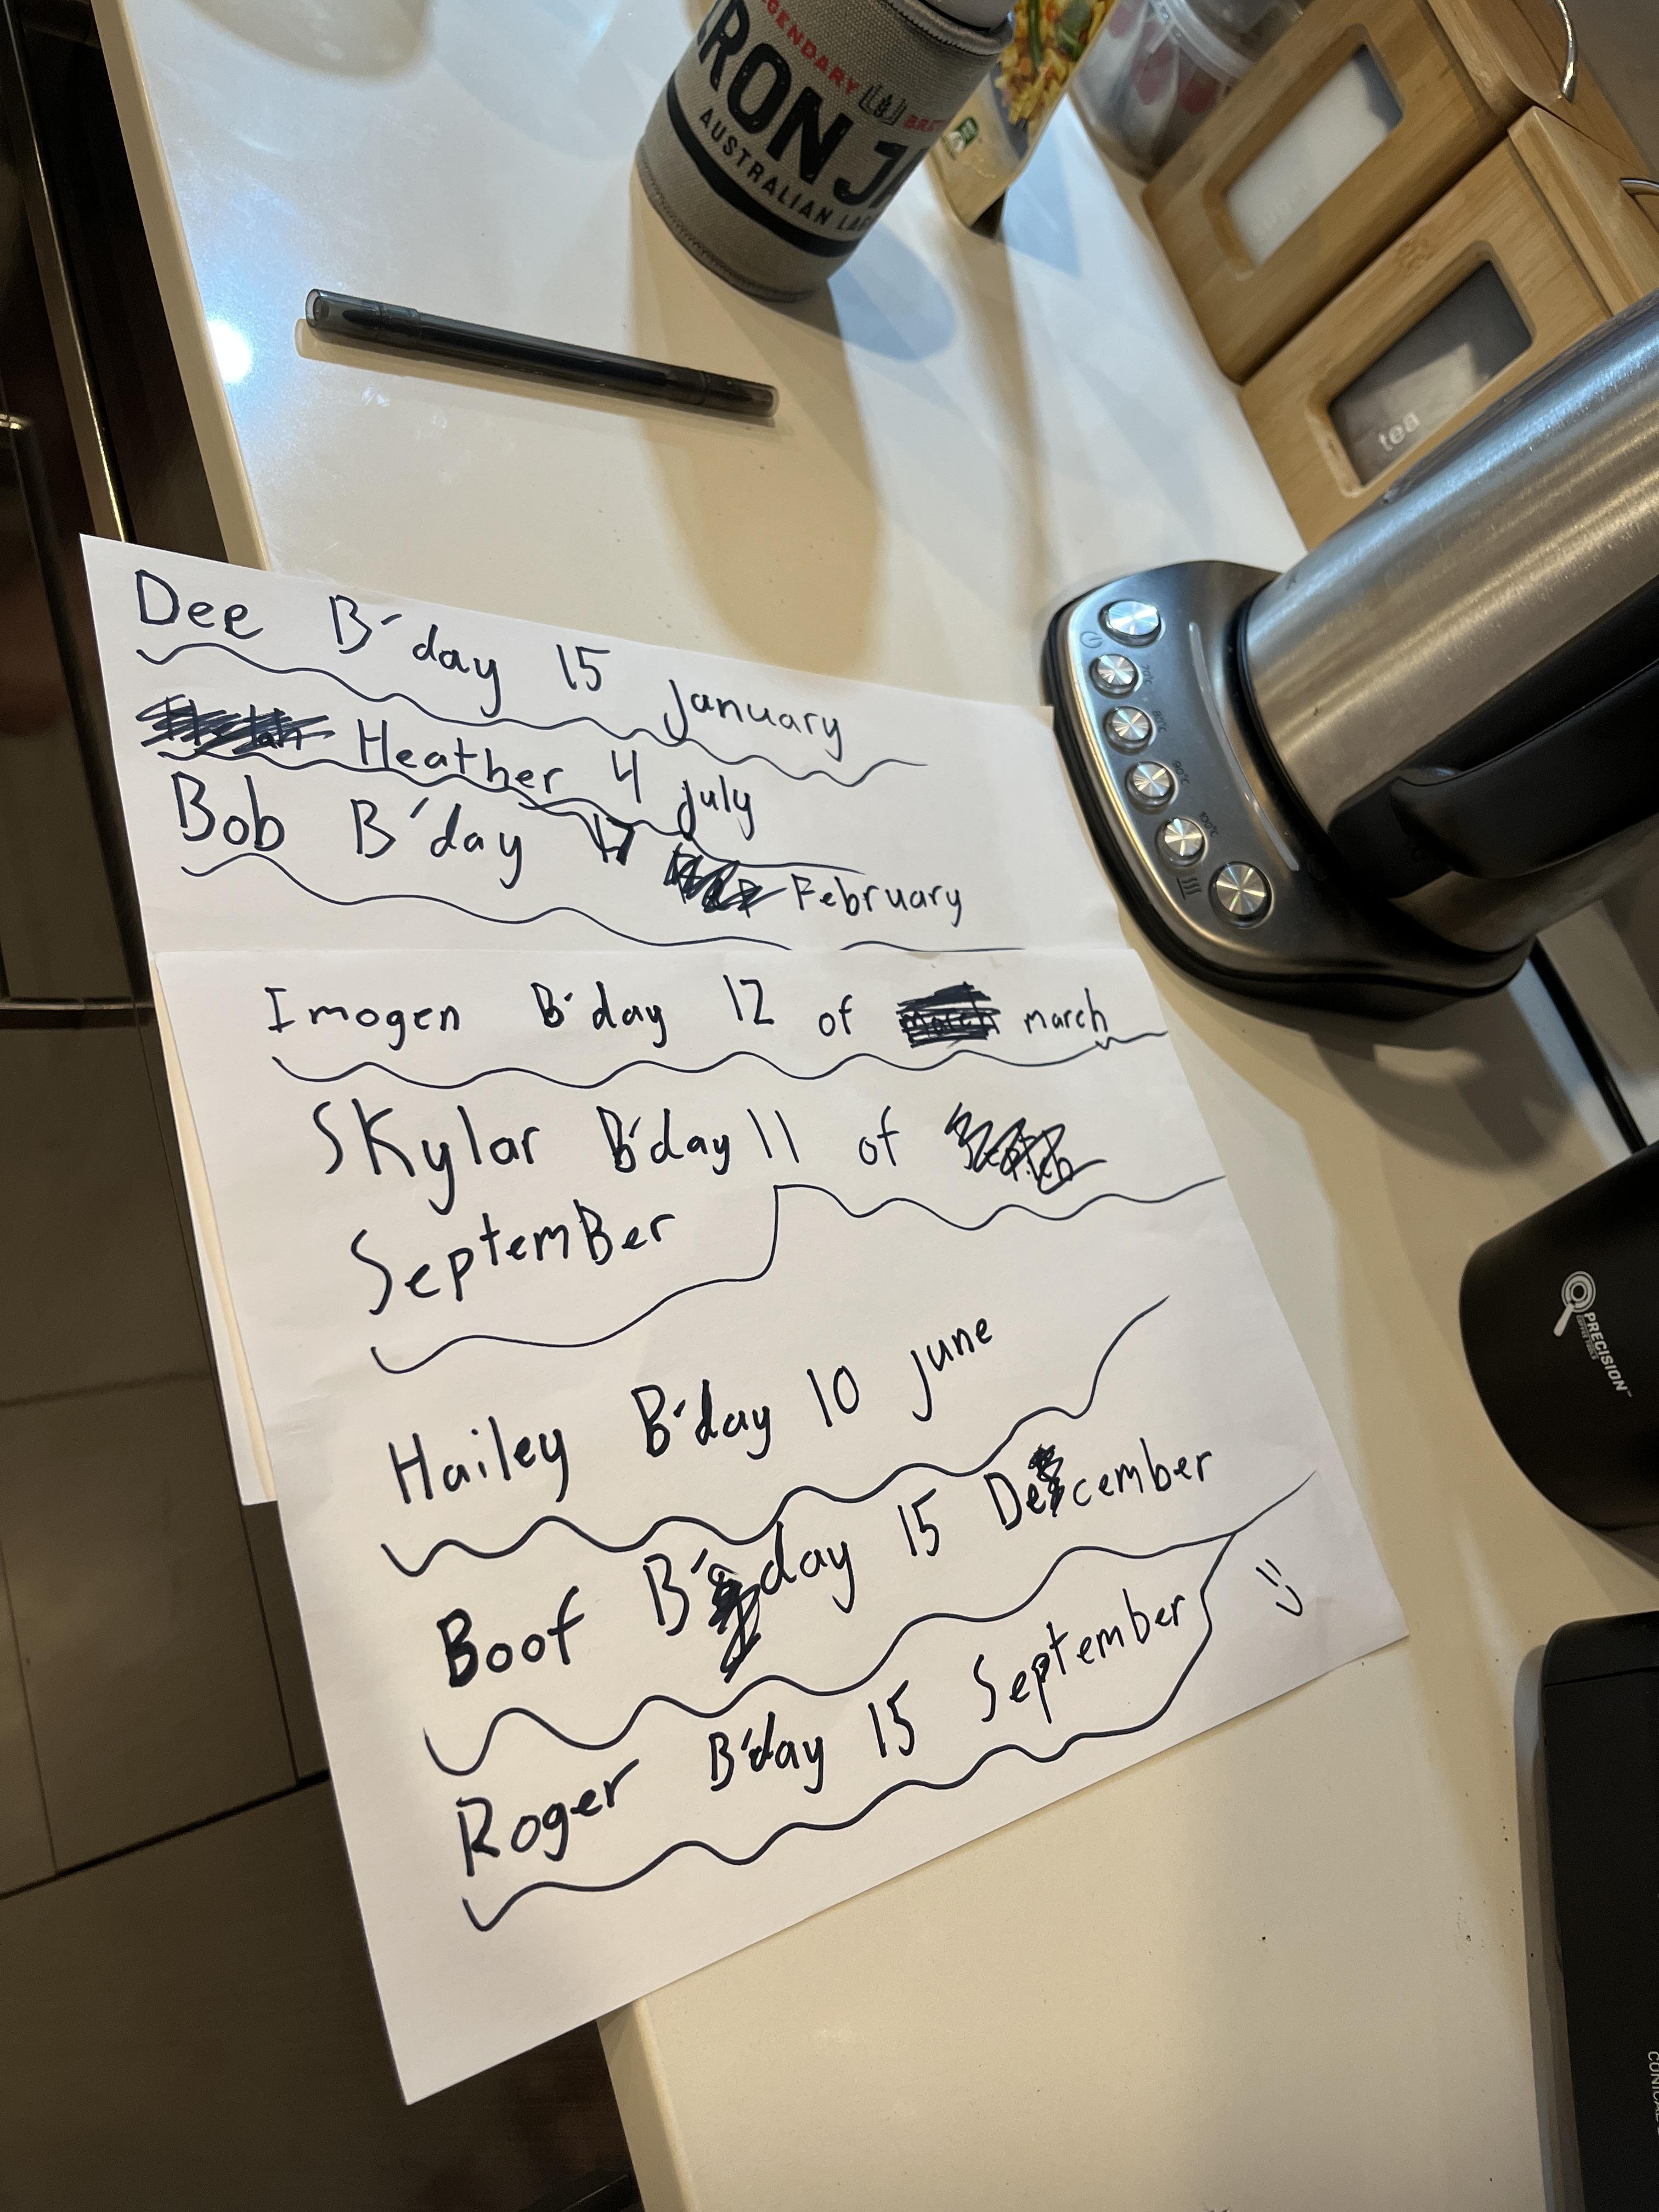 LEGENDARY
IRON JA
AUSTRALIAN LAG
sugar
tea
70°C
80°C
90°C
100°C
Dee B'day 15 January
Heather 4 July
Bob B'day 17 February
Imogen B'day 12 of march
SKylar B'day 11 of
SeptemBer
Hailey B'day 10 june
Boof B'day 15 December
Roger B'day 15 September
PRECISION
COFFEE TOOLS
CONICAL